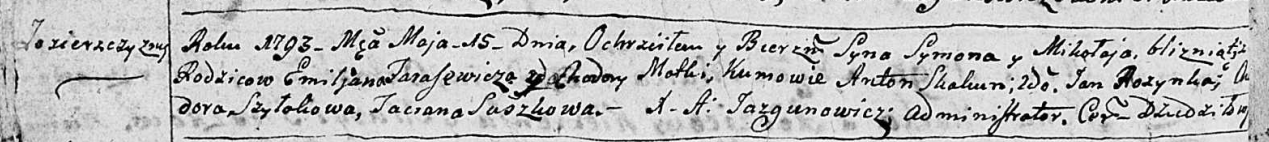 Jozierzczyzna
Roku 1793 - Mca Maja - 15 - Dnia, Ochrzciłem y Bierzm Syna Symona y Mikołaja, blizniąt
Rodzicow Emiljana Tarasewicza y Chodory Matki, Kumowie Anton Skakun; 2do. Jan Rozynka;
dora Szyłakowa, Taciana Suszkowa. - X - A: Jazgunowicz; Administrator. Cer - Dziedził